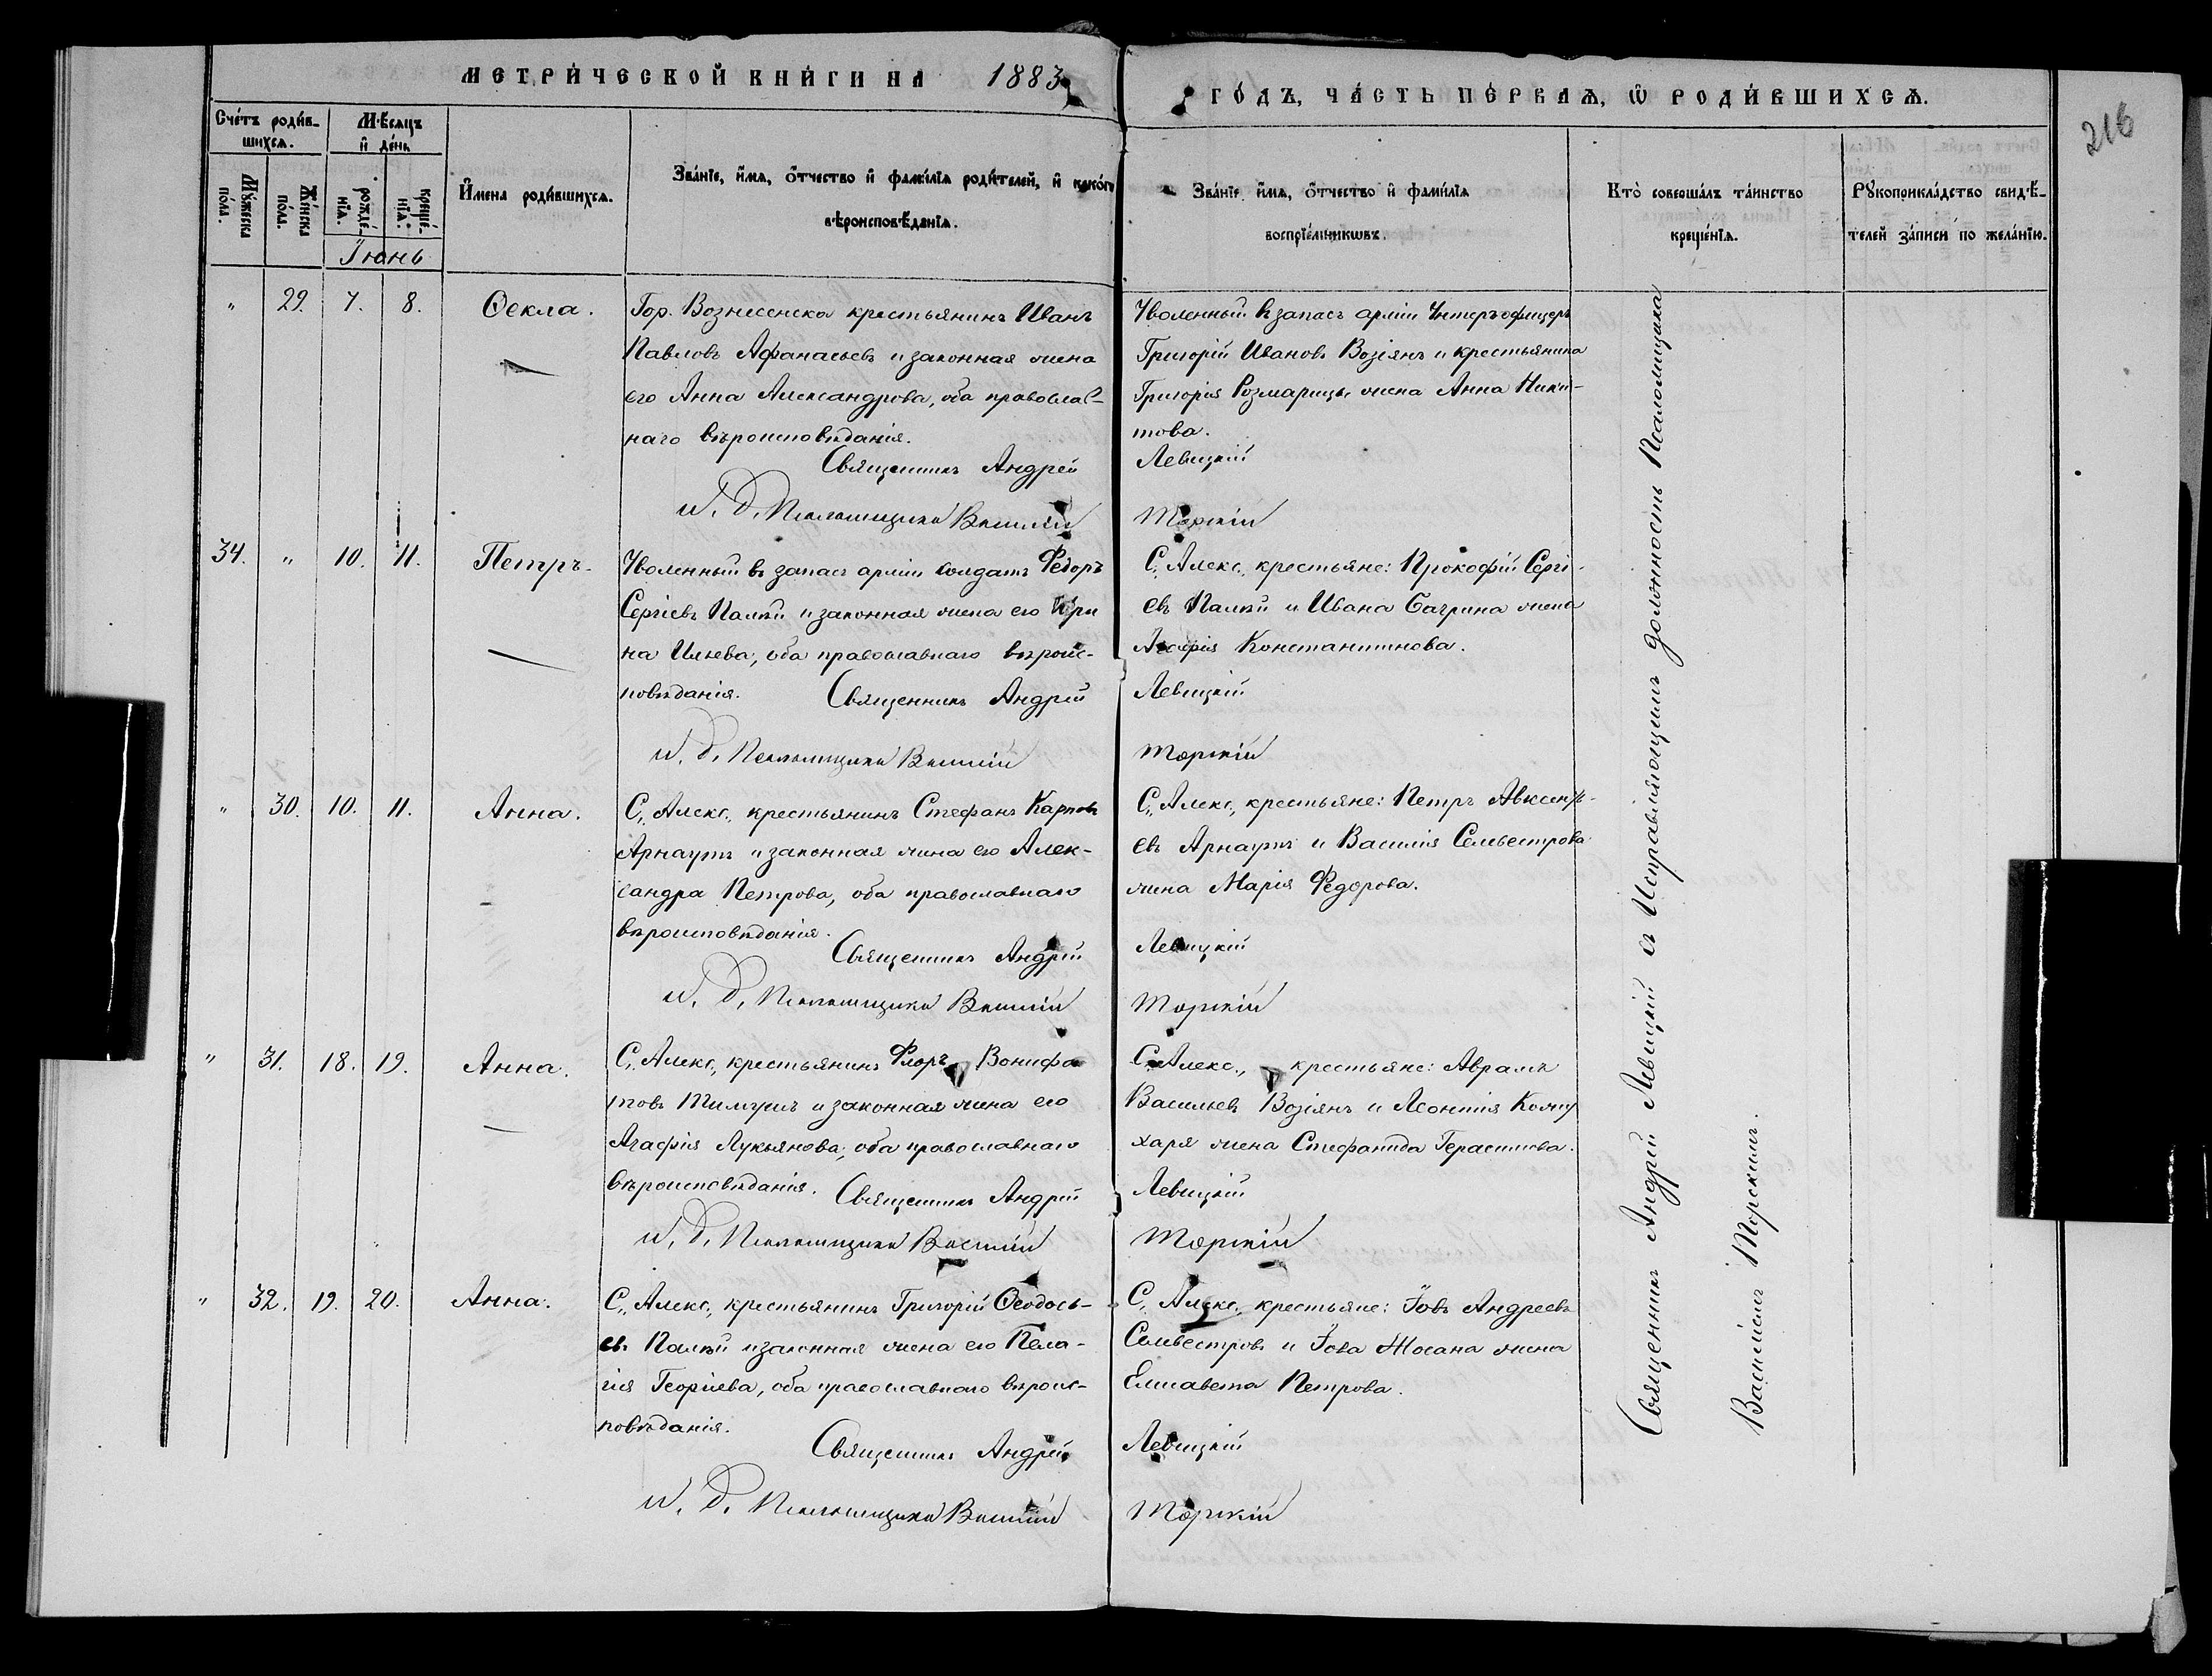 МЕТРИ́ЧЕСКОЙ КНИ́ГИ НА 1883
ГО́ДЪ, ЧА́СТЬ ПЕ́РВАѦ, Ѡ РОДИ́ВШИХСѦ.
216
Сче́тъ роди́в-
шихсѧ.
Мѣсяцъ
и҆ де́нь
Мꙋ́жеска
по́ла.
Же́нска
по́ла.
рожде́-
нїѧ.
креще́-
нїѧ.
И҆мена роди́вшихсѧ.
Зва́нїе, и҆́мѧ, о҆́тчество и҆ фами́лїѧ роди́телей, и҆ како́гѡ
вѣроисповѣ́данїѧ.
Зва́нїе, и҆́мѧ, о҆́тчество и҆ фами́лїѧ
воспрїе́мникѡвъ.
Кто̀ соверша́лъ та́инство
креще́нїѧ.
Рꙋкоприкла́дство свидѣ́-
телей за́писи по жела́нїю.
Іюнь
" 29. 7. 8. Ѳекла.
Гор. Вознесенска крестьянинъ Иванъ
Павловъ Афанасьевъ и законная жена
его Анна Александрова, оба православ-
наго вѣроисповѣданія.
Священникъ Андрей
И. д. Псаломщика Василій
Уволенный въ запасъ арміи Унтеръ офицеръ
Григорій Ивановъ Возіянъ и крестьянина
Григорія Розмарицы жена Анна Ники-
това.
Левицкій
Торскій
34. " 10. 11. Петръ.
Уволенный въ запасъ арміи солдатъ Федоръ
Сергіевъ Палкй и законная жена его Ири
на Ильева, оба православнаго вѣроис-
повѣданія. Священникъ Андрей
И. д. Псаломщика Василій
С. Алекс. крестьяне: Прокофій Сергі-
евъ Палкй и Ивана Багрина жена
Агафія Константинова.
Левицкій
Торскій
" 30. 10. 11. Анна.
С. Алекс. крестьянинъ Стефанъ Карповъ
Арнаутъ и законная жена его Алек-
сандра Петрова, оба православнаго
вѣроисповѣданія.
Священникъ Андрей
И. д. Псаломщика Василій
С. Алекс. крестьяне: Петръ Авксенть-
евъ Арнаутъ и Василія Сельвестрова
жена Марія Федорова.
Левицкій
Торскій
" 31. 18. 19. Анна.
С. Алекс. крестьянинъ Флоръ Вонифа
товъ и законная жена его
Агафія Лукьянова, оба православнаго
вѣроисповѣданія. Священникъ Андрей
И. д. Псаломщика Василій
С. Алекс., крестьяне: Аврамъ
Васильевъ Возіянъ и Леонтія Кожу
харя жена Стефанида Герасимова.
Левицкій
Торскій
" 32. 19. 20. Анна.
С. Алекс. крестьянинъ Григорій Ѳеодось-
евъ Палкй и законная жена его Пела-
гія Георгіева, оба православнаго вѣроис-
повѣданія.
Священникъ Андрей
И. д. Псаломщика Василій
С. Алекс. крестьяне: Іовъ Андреевъ
Сельвестровъ и Іова Мосана жена
Елисавета Петрова.
Левицкій
Торскій
Священникъ Андрей Левицкій съ Исправляющимъ должность Псаломщика
Василіемъ Торскимъ.